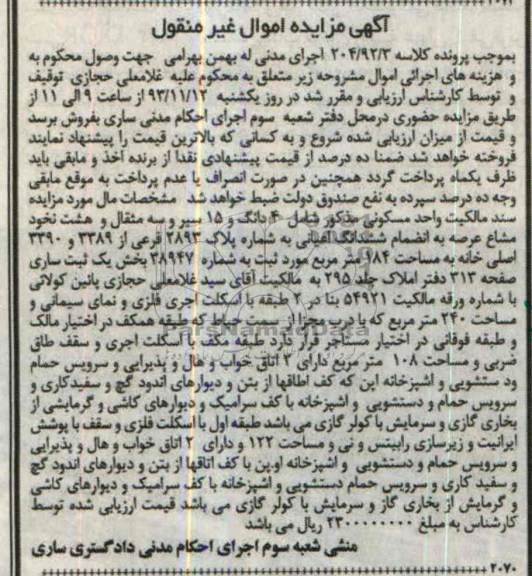 آگهی مزایده اموال غیر منقول
بموجب پرونده کلاسه ۲۰۴/۹۲/۳ اجرای مدنی له بهمن بهرامی جهت وصول محکوم به
و هزینه های اجرائی اموال مشروحه زیر متعلق به محکوم علیه غلامعلی حجازی توقیف
و توسط کارشناس ارزیابی و مقرر شد در روز یکشنبه ۹۳/۱۱/۱۲ از ساعت ۹ الی ۱۱ از
طریق مزایده حضوری درمحل دفتر شعبه سوم اجرای احکام مدنی ساری بفروش برسد
و قیمت از میزان ارزیابی شده شروع و به کسانی که بالاترین قیمت را پیشنهاد نمایند
فروخته خواهد شد ضمنا ده درصد از قیمت پیشنهادی نقدا از برنده اخذ و مابقی باید
ظرف یکماه پرداخت گردد همچنین در صورت انصراف یا عدم پرداخت به موقع مابقی
وجه ده درصد سپرده به نفع صندوق دولت ضبط خواهد شد مشخصات مال مورد مزایده
سند مالکیت واحد مسکونی مذکور شامل ۴ دانگ و ۱۵ سیر و سه مثقال و هشت نخود
مشاع عرصه به انضمام ششدانگ اعیانی به شماره پلاک ۲۸۹۳ فرعی از ۳۳۸۹ و ۳۳۹۰
اصلی خانه به مساحت ۱۸۴ متر مربع مورد ثبت به شماره ۳۸۹۴۷ بخش یک ثبت ساری
صفحه ۳۱۳ دفتر املاک جلد ۲۹۵ به مالکیت آقای سید غلامعلی حجازی پائین کولائی
با شماره ورقه مالکیت ۵۴۹۲۱ بنا در ۲ طبقه با اسکلت اجری فلزی و نمای سیمانی و
مساحت ۲۴۰ متر مربع که با درب مجزا از سمت حیاط که طبقه همکف در اختیار مالک
و طبقه فوقانی در اختیار مستاجر قرار دارد طبقه مکف با اسکلت اجری و سقف طاق
ضربی و مساحت ۱۰۸ متر مربع دارای ۲ اتاق خواب و هال و پذیرایی و سرویس حمام
ود ستشویی و اشپزخانه اپن که کف اطاقها از بتن و دیوارهای اندود گچ و سفیدکاری و
سرویس حمام و دستشویی و اشپزخانه با کف سرامیک و دیوارهای کاشی و گرمایشی از
بخاری گازی و سرمایش با کولر گازی می باشد طبقه اول با اسکلت فلزی و سقف با پوشش
ایرانیت و زیرسازی رابیتس و نی و مساحت ۱۲۲ و دارای ۲ اتاق خواب و هال و پذیرایی
و سرویس حمام و دستشویی و اشپزخانه او.پن با کف اتاقها از بتن و دیوارهای اندود گچ
و سفید کاری و سرویس حمام دستشویی و اشپزخانه با کف سرامیک و دیوارهای کاشی
و گرمایش از بخاری گاز و سرمایش با کولر گازی می باشد قیمت ارزیابی شده توسط
کارشناس به مبلغ ۲۳۰۰۰۰۰۰۰۰ ریال می باشد
منشی شعبه سوم اجرای احکام مدنی دادگستری ساری
۲۰۷۰